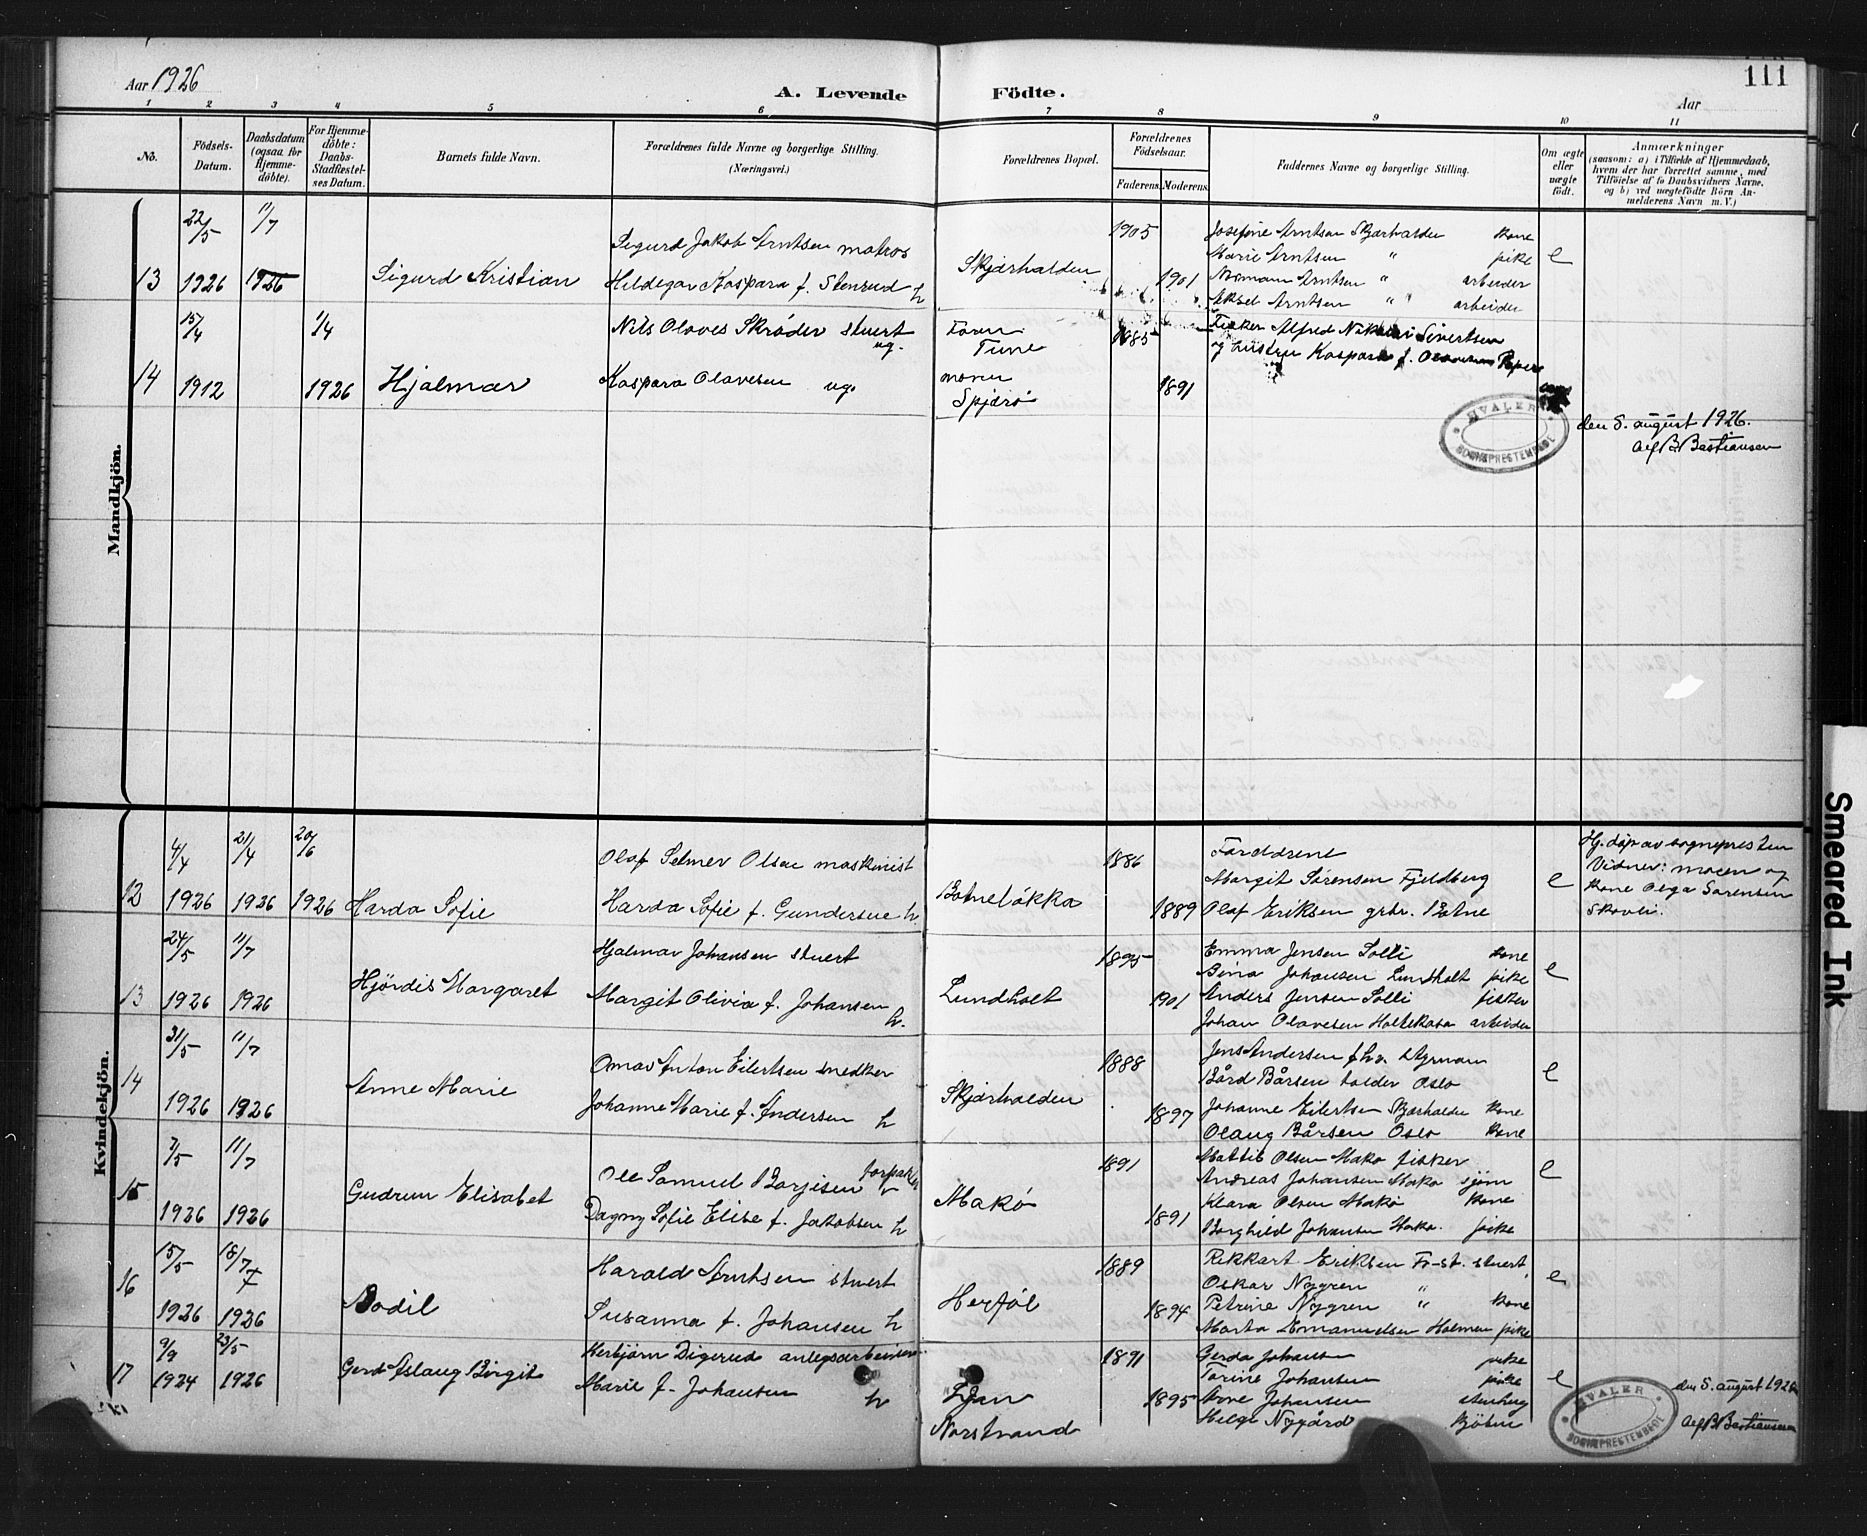 Aar 1926
A. Levende Födte.
Aar
111
1 2 3 4 5 6 7 8 9 10 11
No.
Födsels-Datum.
Daabsdatum (ogsaa for Hjemme-döbte).
For Hjemme-döbte: Daabs-Stadfæstel-ses Datum.
Barnets fulde Navn.
Forældrenes fulde Navne og borgerlige Stilling.
(Næringsvei.)
Forældrenes Bopæl.
Forældrenes Födselsaar.
Faderens. Moderens.
Faddernes Navne og borgerlige Stilling.
Om ægte eller uægte födt.
Anmærkninger
(saasom: a) i Tilfælde af Hjemmedaab, hvem der har forrettet samme, med Tilföielse af to Daabsvidners Navne, og b) ved uægtefödte Börn An-melderens Navn m. V.)
Mandkjön.
13
22/5 1926
11/7 1926
Sigurd Kristian
Sigurd Jakob Arntsen matros
Hildegar Kaspara f. Stenrud h
Skjærhalden
1905
1901
Josefine Arntsen Skjærhalden kone
Marie Arntsen " pike
Norman Arntsen " arbeider
Aksel Arntsen " arbeider
e
14
15/4 1912
1/4 1926
Hjalmar
Nils Olaves Skrøder stuert ug.
Kaspara Olavesen ug.
Faren Tune
moren Spjærø
1885
1891
Fisker Alfred Sivertsen
og hustru Kaspara f.
HVALER
SOGNEPRESTEMBEDE
den 5. august 1926.
Alf B. Bastiansen
Kvindekjön.
12
4/4 1926
21/4 1926
20/6 1926
Harda Sofie
Olaf Selmer Olsen maskinist
Harda Sofie f. Gundersen h
Botneløkka
1886
1889
Forældrene
Margit Sørensen Fjeldberg
Olaf Eriksen grbr. Botne
e
Hj. døp av sognepresten
Vidner: moren og
kone Olga Sørensen
Skovli.
13
24/5 1926
11/7 1926
Hjördis Margaret
Hjalmar Johansen stuert
Margit Olivia f. Johansen h.
Lundholt
1895
1901
Emma Jensen Solli kone
Bina Johansen Lundholt pike
Anders Jensen Solli fisker
Johan Olavesen arbeider
e
14
31/5 1926
11/7 1926
Anne Marie
Omar Anton Eilertsen snedker
Johanne Marie f. Andersen h
Skjærhalden
1888
1897
Jens Andersen fhv. styrman
Bård Bårsen Oslo
Johanne Eilertsen Skjærhalden kone
Olaug Bårsen Oslo kone
e
15
7/5 1926
11/7 1926
Gudrun Elisabet
Ole Samuel Borgisen forpakter
Dagny Sofie Elise f. Jakobsen h
Makø
1891
1891
Mattis Olsen Makø fisker
Andreas Johansen Makø sjøm
Klara Olsen Makø kone
Borghild Johansen Makø. pike
e
16
15/5 1926
18/7 1926
Bodil
Harald Arntsen stuert
Susanna f. Johansen h
Herføl
1889
1894
Rikkart Eriksen Fr-st. stuert
Oskar Nygren "
Petrine Nygren " kone
Marta Emanuelsen Holmen pike
e
17
9/9 1924
23/5 1926
Gerd Aslaug Birgit
Herbjörn Digerud anlegsarbeider
Marie f. Johansen h
Ljan
Norstrand
1891
1895
Gerda Johansen pike
Torine Johansen pike
Arne Johansen
Helge Nygård
e
HVALER
SOGNEPRESTEMBEDE
den 5. august 1926
Alf B. Bastiansen
Smeared Ink